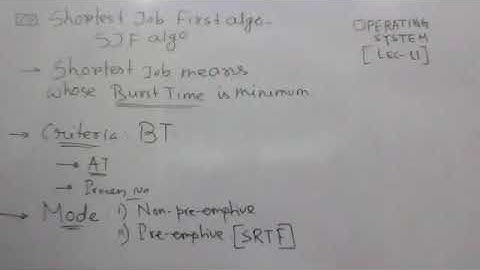 Shortest Job First algo-
SJF algo
OPERATING
SYSTEM
[LEC-11]
→ Shortest Job means
whose Burst Time is minimum
→ Criteria: BT
→ AT
→ Process No
→ Mode i) Non-pre-emptive
ii) Pre-emptive [SRTF]